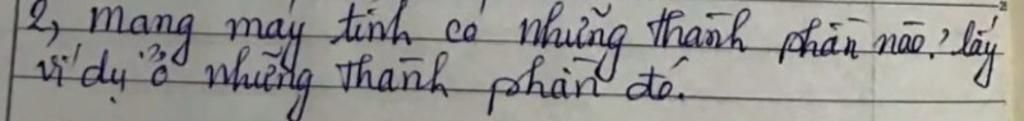 2, Mạng máy tính có những thành phần nào? lấy
ví dụ ở những thành phần đó.